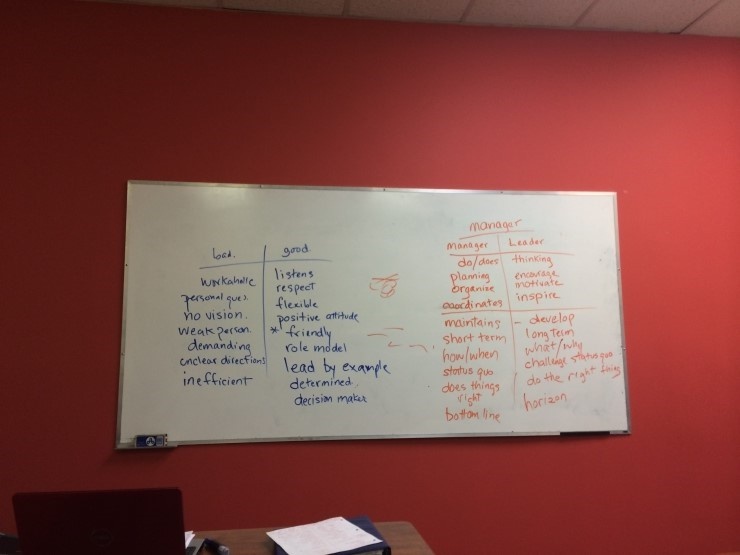 bad.
good
workaholic
personal ques.
no vision.
weak person.
demanding
unclear directions
inefficient
listens
respect
flexible
positive attitude
* friendly
role model
lead by example
determined.
decision maker
manager
manager
Leader
do/does
planning
organize
coordinates
thinking
encourage
motivate
inspire
maintains
short term
how/when
status quo
does things
right
bottom line
- develop
long term
what/why
challenge status quo
do the right thing
horizon